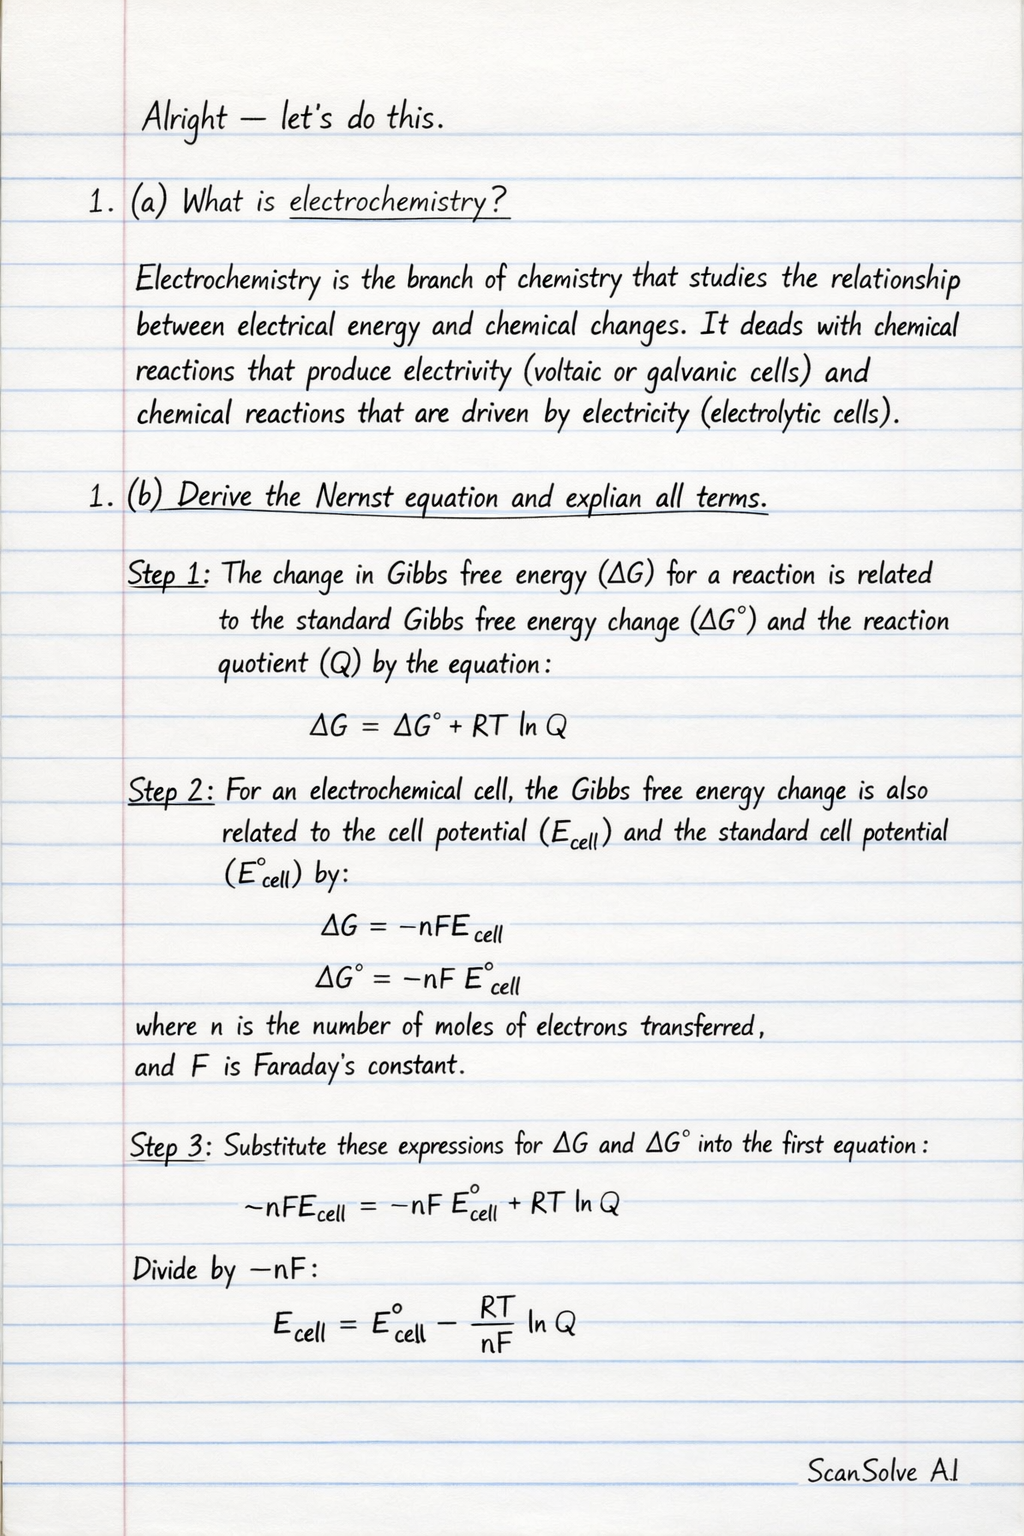 Alright — let's do this.
1. (a) What is electrochemistry?
Electrochemistry is the branch of chemistry that studies the relationship
between electrical energy and chemical changes. It deads with chemical
reactions that produce electrivity (voltaic or galvanic cells) and
chemical reactions that are driven by electricity (electrolytic cells).
1. (b) Derive the Nernst equation and explian all terms.
Step 1: The change in Gibbs free energy (ΔG) for a reaction is related
to the standard Gibbs free energy change (ΔG°) and the reaction
quotient (Q) by the equation:
ΔG = ΔG° + RT ln Q
Step 2: For an electrochemical cell, the Gibbs free energy change is also
related to the cell potential (Ecell) and the standard cell potential
(E°cell) by:
ΔG = −nFE cell
ΔG° = −nF E°cell
where n is the number of moles of electrons transferred,
and F is Faraday's constant.
Step 3: Substitute these expressions for ΔG and ΔG° into the first equation:
~nFEcell = −nF E°cell + RT ln Q
Divide by −nF:
Ecell = E°cell − RT/nF ln Q
ScanSolve A.I